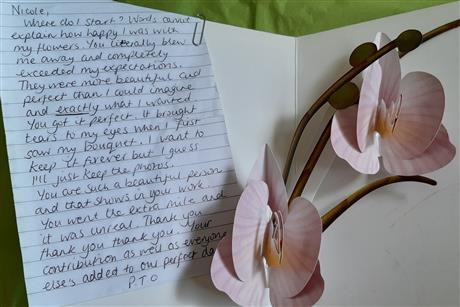 Nicole,
Where do I start? Words cannot
explain how happy I was with
my flowers. You literally blew
me away and completely
exceeded my expectations.
They were more beautiful and
perfect than I could imagine
and exactly what I wanted.
You got it perfect. It brought
tears to my eyes when I first
saw my bouquet. I want to
keep it forever but I guess
I'll just keep the photos.
You are such a beautiful person
and that shows in your work.
You went the extra mile and
it was unreal. Thank you
thank you thank you. Your
contribution as well as everyone
else's added to our perfect day
P.T.O